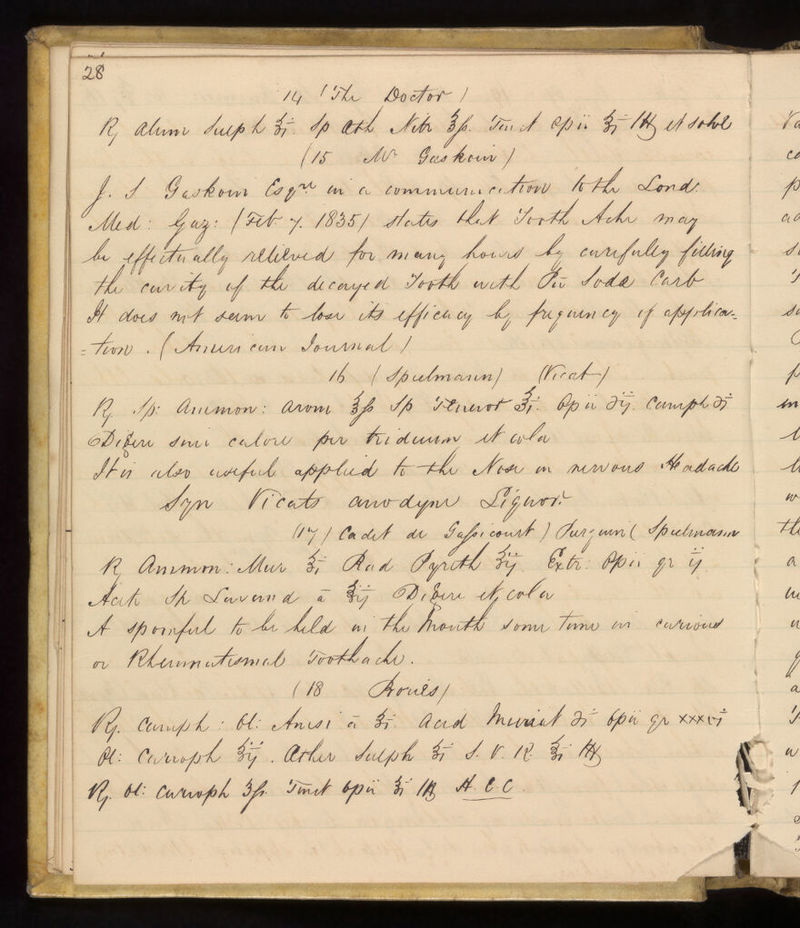 28
14 (The Doctor)
R Alum Sulph ʒi. Sp Æth Nitr ℥ſs. Tinct Opii ʒi M et solve
(15 Mr Gaskoin)
J. S Gaskoin Esqre in a communication to the Lond.
Med: Gaz: (Feb 7. 1835) states that Tooth Ache may
be effectually relieved for many hours by carefully filling
the cavity of the decayed Tooth with Soda Carb
It does not seem to lose its efficacy by frequency of applica-
-tion. (American Journal)
16 (Spielmann) (Vicat)
R Sp: Ammon: arom ʒſs Sp Opii ℈ij. Camph ℈i
Digere sine calore per triduum et cola
It is also useful applied to the Nose in nervous Headache
Syn Vicats anodyne Liquor.
(17) Cadet de Gassicourt) (Spielmann
R Ammon: Mur ʒi Rad Pyreth ʒij Extr: Opii gr ij
Acet Sp Lavand ā ʒij Digere et cola
A spoonful to be held in the Mouth some time in carious
or Rheumatismal Toothache.
(18
R. Camph: Ol: Anisi ā ʒi Acid Muriat ℈i Opii gr xxxvi
Ol: Caryoph ʒij. Æther Sulph ʒi S. V. R. ʒi M
R. Ol: Caryoph ʒſs. Tinct Opii ʒi M H. C C.